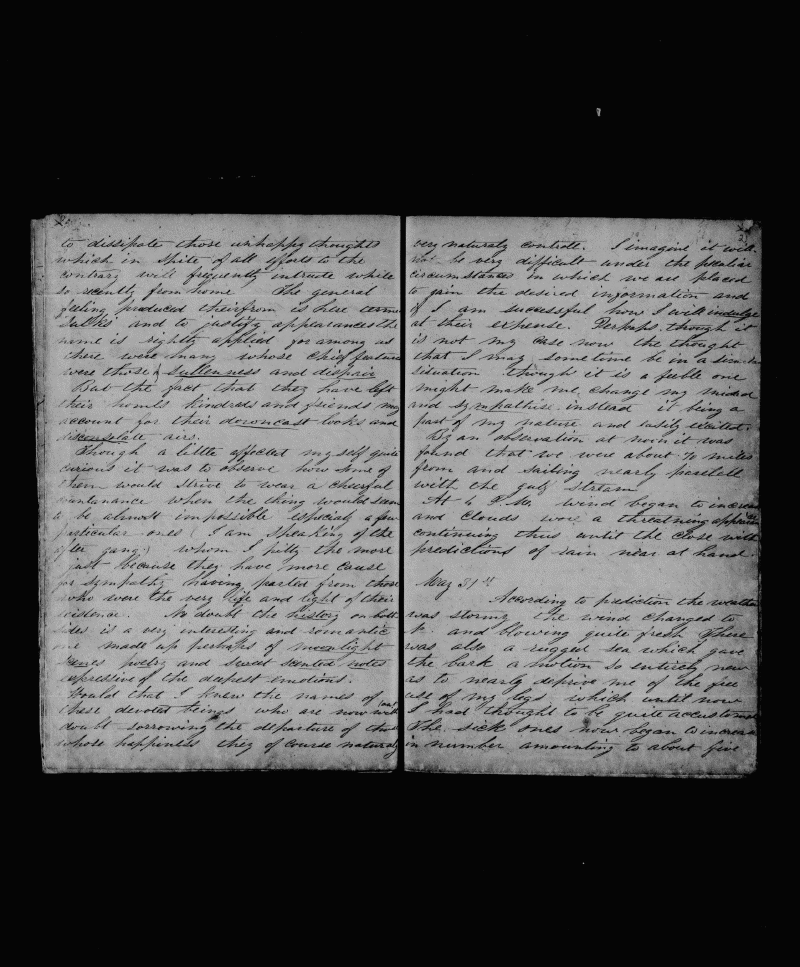 to dissipate those unhappy thoughts
which in spite of all efforts to the
contrary will frequently intrude while
so recently from home The general
feeling produced theirfrom is here
and to justify appearances the
name is rightly applied for among us
there were many whose chief feature
were those of sullenness and dispair
But the fact that they have left
their homes kindreds and friends may
account for their downcast looks and
disconsolate airs.
Though a little affected myself quite
curious it was to observe how some of
them would strive to wear a cheerful
countenance when the thing would seem
to be almost impossible especialy a few
particular ones (I am speaking of the
after gang) whom I pitty the more
just because they have more cause
for sympathy having parted from those
who were the very life and light of their
existence. No doubt the history on both
sides is a very interesting and romantic
one made up perhaps of moonlight
scenes poetry and sweet scented notes
expressive of the deepest emotions.
Would that I knew the names of
these devoted beings who are now
doubt sorrowing the departure of those
whose happiness they of course naturaly
very naturaly controll. I imagine it will
not be very difficult under the peculiar
circumstances in which we are placed
to gain the desired information and
if I am successful how I will indulge
at their expense. Perhaps though it
is not my case now the thought
that I may sometime be in a similar
situation though it is a feeble one
might make me change my mind
and sympathise instead it being a
part of my nature and easily excited.
By an observation at noon it was
found that we were about 70 miles
from and sailing nearly paralell
with the gulf stream
At 4 P.M. wind began to increase
and clouds wore a threatning
continuing thus until the close with
predictions of rain near at hand
May 31st
According to prediction the weather
was stormy the wind changed to
and blowing quite fresh There
was also a rugged sea which gave
the bark a motion so entirely new
as to nearly deprive me of the free
use of my legs which until now
I had thought to be quite accustomed
The sick ones now began to increase
in number amounting to about five